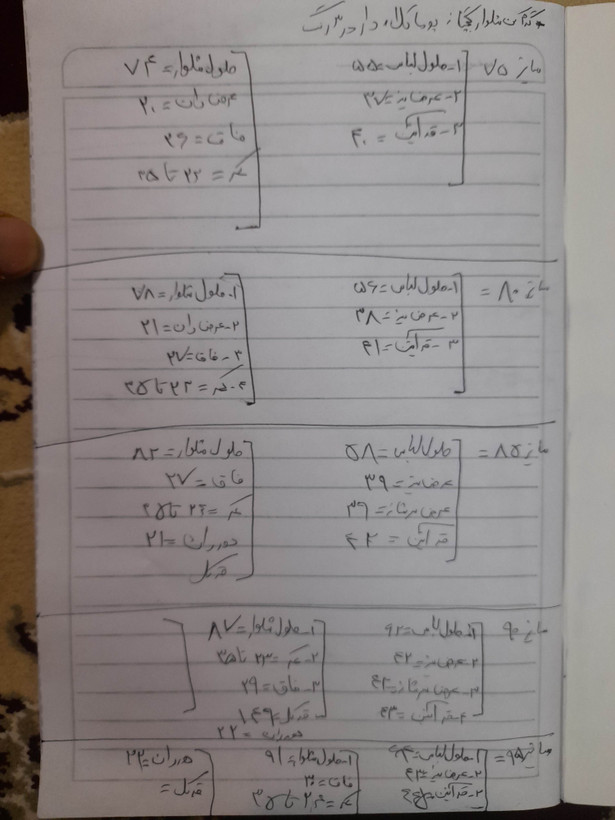 سایز ۷۵
۱- طول لباس = ۵۵
۲- عرض سینه = ۳۷
۳- قد آستین = ۴۰
طول شلوار = ۷۴
عرض ران = ۲۰
فاق = ۲۶
کمر = ۲۲ تا ۳۵
سایز ۸۰ =
۱- طول لباس = ۵۶
۲- عرض سینه = ۳۸
۳- قد آستین = ۴۱
۱- طول شلوار = ۷۸
۲- عرض ران = ۲۱
۳- فاق = ۲۷
۴- کمر = ۲۲ تا ۳۵
سایز ۸۵ =
طول لباس = ۵۸
عرض سینه = ۳۹
عرض سرشانه = ۳۹
قد آستین = ۴۲
طول شلوار = ۸۲
فاق = ۲۷
کمر = ۲۲ تا ۳۵
دور ران = ۲۱
قد کل
سایز ۹۰
۱- طول لباس = ۶۲
۲- عرض سینه = ۴۲
۳- عرض سرشانه = ۴۲
۴- قد آستین = ۴۳
۱- طول شلوار = ۸۷
۲- کمر = ۲۳ تا ۳۵
۳- فاق = ۲۹
قد کل = ۱۴۹
دور ران = ۲۲
سایز ۹۵ =
۱- طول لباس = ۶۴
۲- عرض سینه = ۴۳
۳- قد آستین =
۱- طول شلوار = ۹۱
فاق = ۳۰
کمر = ۲۴ تا ۳۵
دور ران = ۲۳
قد کل =